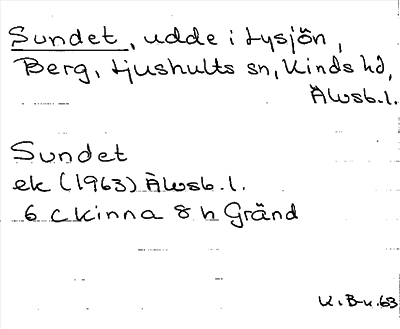 Sundet, udde i Lysjön,
Berg, Ljushults sn, Kinds hd,
Älvsb. l.
Sundet
ek (1963) Älvsb. l.
6 c Kinna 8 h Gränd
K. B-n. 63